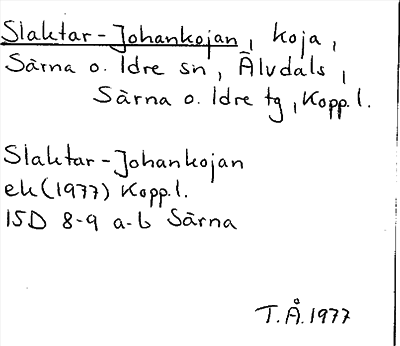 Slaktar-Johankojan, koja,
Särna o. Idre sn, Älvdals,
Särna o. Idre tg, Kopp.l.
Slaktar-Johankojan
ek (1977) Kopp.l.
15D 8-9 a-b Särna
T.Å. 1977